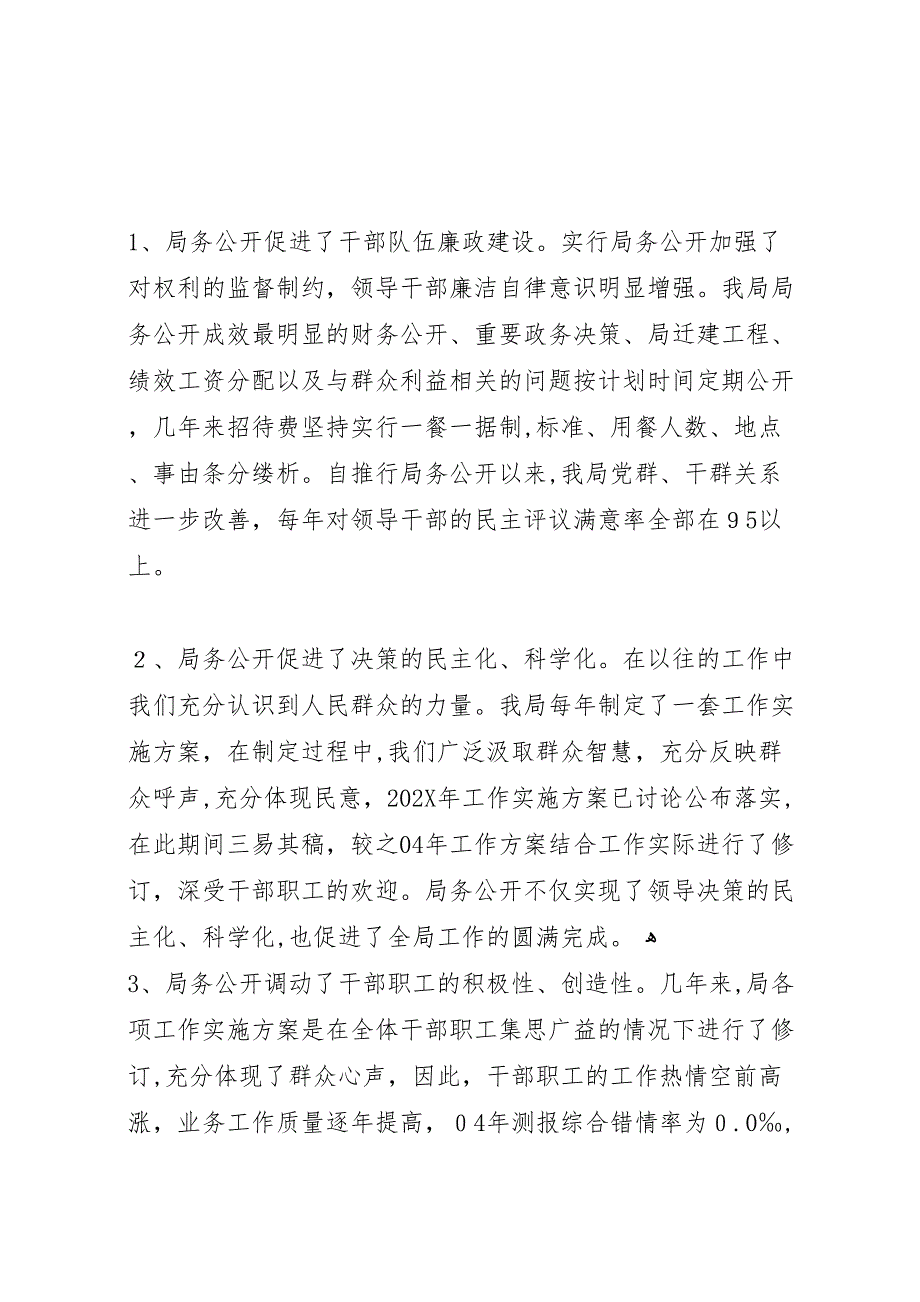 1、局务公开促进了干部队伍廉政建设。实行局务公开加强了
对权利的监督制约，领导干部廉洁自律意识明显增强。我局局
务公开成效最明显的财务公开、重要政务决策、局迁建工程、
绩效工资分配以及与群众利益相关的问题按计划时间定期公开
，几年来招待费坚持实行一餐一据制,标准、用餐人数、地点
、事由条分缕析。自推行局务公开以来,我局党群、干群关系
进一步改善，每年对领导干部的民主评议满意率全部在９5以
上。
２、局务公开促进了决策的民主化、科学化。在以往的工作中
我们充分认识到人民群众的力量。我局每年制定了一套工作实
施方案，在制定过程中,我们广泛汲取群众智慧，充分反映群
众呼声,充分体现民意，202X年工作实施方案已讨论公布落实,
在此期间三易其稿，较之04年工作方案结合工作实际进行了修
订，深受干部职工的欢迎。局务公开不仅实现了领导决策的民
主化、科学化,也促进了全局工作的圆满完成。 ﻫ
3、局务公开调动了干部职工的积极性、创造性。几年来,局各
项工作实施方案是在全体干部职工集思广益的情况下进行了修
订,充分体现了群众心声，因此，干部职工的工作热情空前高
涨，业务工作质量逐年提高，０4年测报综合错情率为０.0‰,